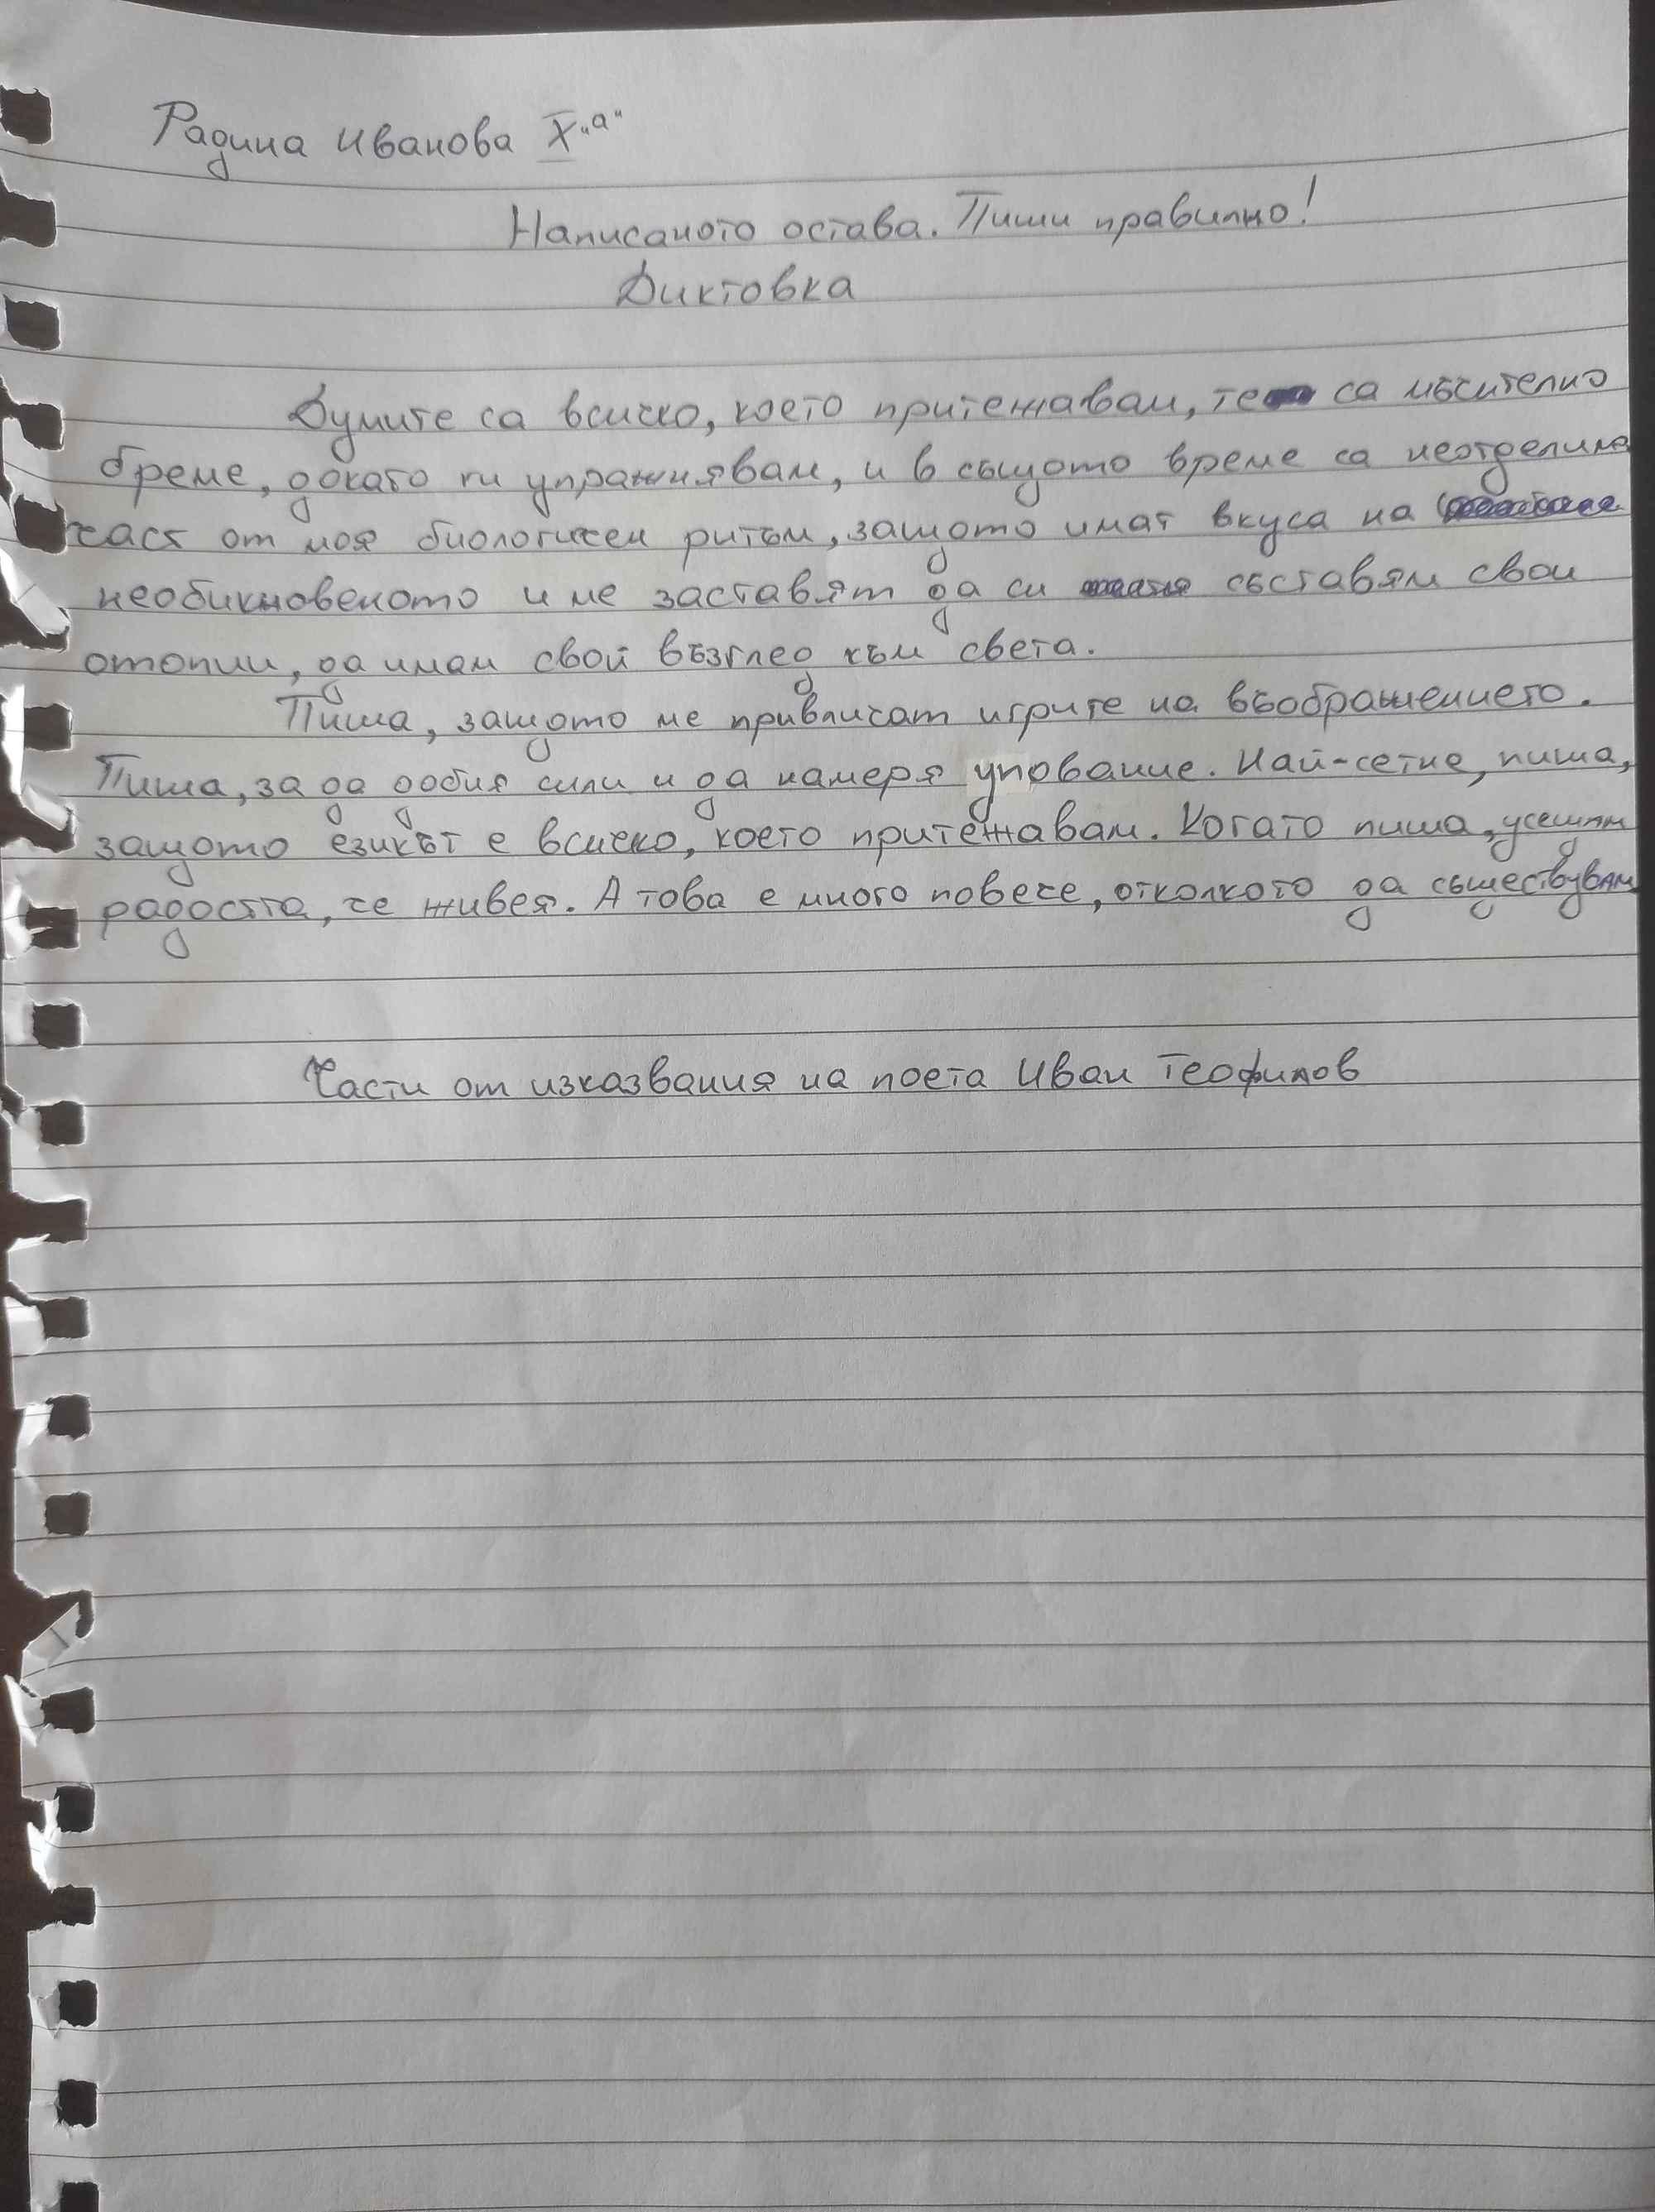 Радина Иванова X "а"
Написаното остава. Пиши правилно!
Диктовка
Думите са всичко, което притежавам, те са мъчително
бреме, докато ги упражнявам, и в същото време са неотделима
част от моя биологичен ритъм, защото имат вкуса на
необикновеното и ме заставят да си съставям свои
отопии, да имам свой възглед към света.
Пиша, защото ме привличат игрите на въображението.
Пиша, за да добия сили и да намеря упование. Най-сетне, пиша,
защото езикът е всичко, което притежавам. Когато пиша, усещам
радостта, че живея. А това е много повече, отколкото да съществувам
Части от изказвания на поета Иван Теофилов